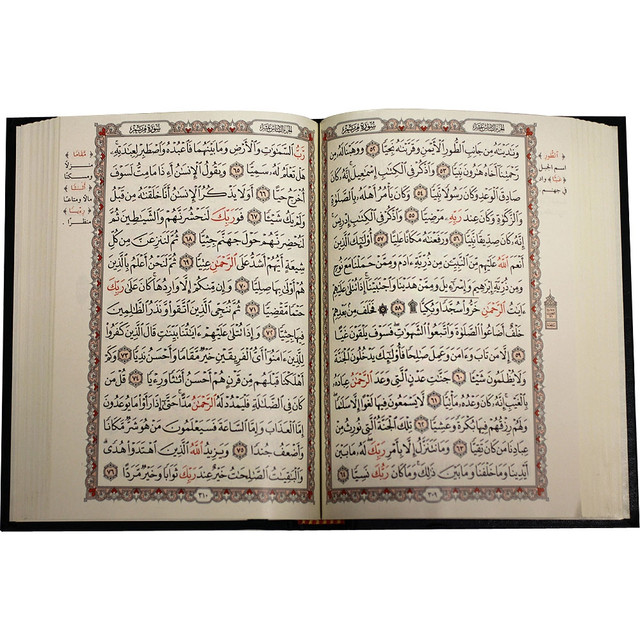 الجزء السادس عشر سورة مريم
وَنَٰدَيۡنَٰهُ مِن جَانِبِ ٱلطُّورِ ٱلۡأَيۡمَنِ وَقَرَّبۡنَٰهُ نَجِيّٗا ٥٢ وَوَهَبۡنَا لَهُۥ مِن
رَّحۡمَتِنَآ أَخَاهُ هَٰرُونَ نَبِيّٗا ٥٣ وَٱذۡكُرۡ فِي ٱلۡكِتَٰبِ إِسۡمَٰعِيلَۚ إِنَّهُۥ كَانَ
صَادِقَ ٱلۡوَعۡدِ وَكَانَ رَسُولٗا نَّبِيّٗا ٥٤ وَكَانَ يَأۡمُرُ أَهۡلَهُۥ بِٱلصَّلَوٰةِ
وَٱلزَّكَوٰةِ وَكَانَ عِندَ رَبِّهِۦ مَرۡضِيّٗا ٥٥ وَٱذۡكُرۡ فِي ٱلۡكِتَٰبِ إِدۡرِيسَۚ
إِنَّهُۥ كَانَ صِدِّيقٗا نَّبِيّٗا ٥٦ وَرَفَعۡنَٰهُ مَكَانًا عَلِيًّا ٥٧ أُوْلَٰٓئِكَ ٱلَّذِينَ
أَنۡعَمَ ٱللَّهُ عَلَيۡهِم مِّنَ ٱلنَّبِيِّـۧنَ مِن ذُرِّيَّةِ ءَادَمَ وَمِمَّنۡ حَمَلۡنَا مَعَ نُوحٖ
وَمِن ذُرِّيَّةِ إِبۡرَٰهِيمَ وَإِسۡرَٰٓءِيلَ وَمِمَّنۡ هَدَيۡنَا وَٱجۡتَبَيۡنَآۚ إِذَا تُتۡلَىٰ عَلَيۡهِمۡ
ءَايَٰتُ ٱلرَّحۡمَٰنِ خَرُّواْۤ سُجَّدٗاۤ وَبُكِيّٗا ٥٨ ۞ فَخَلَفَ مِنۢ بَعۡدِهِمۡ
خَلۡفٌ أَضَاعُواْ ٱلصَّلَوٰةَ وَٱتَّبَعُواْ ٱلشَّهَوَٰتِۖ فَسَوۡفَ يَلۡقَوۡنَ غَيًّا
٥٩ إِلَّا مَن تَابَ وَءَامَنَ وَعَمِلَ صَٰلِحٗا فَأُوْلَٰٓئِكَ يَدۡخُلُونَ ٱلۡجَنَّةَ
وَلَا يُظۡلَمُونَ شَيۡـٔٗا ٦٠ جَنَّٰتِ عَدۡنٍ ٱلَّتِي وَعَدَ ٱلرَّحۡمَٰنُ عِبَادَهُۥ
بِٱلۡغَيۡبِۚ إِنَّهُۥ كَانَ وَعۡدُهُۥ مَأۡتِيّٗا ٦١ لَّا يَسۡمَعُونَ فِيهَا لَغۡوًا إِلَّا سَلَٰمٗاۖ
وَلَهُمۡ رِزۡقُهُمۡ فِيهَا بُكۡرَةٗ وَعَشِيّٗا ٦٢ تِلۡكَ ٱلۡجَنَّةُ ٱلَّتِي نُورِثُ مِنۡ
عِبَادِنَا مَن كَانَ تَقِيّٗا ٦٣ وَمَا نَتَنَزَّلُ إِلَّا بِأَمۡرِ رَبِّكَۖ لَهُۥ مَا بَيۡنَ
أَيۡدِينَا وَمَا خَلۡفَنَا وَمَا بَيۡنَ ذَٰلِكَۚ وَمَا كَانَ رَبُّكَ نَسِيّٗا ٦٤
٣٠٩
﴿ الطُّور ﴾
اسم الجبل
﴿ غَيًّا ﴾ واد
في جهنم
الجزء السادس عشر سورة مريم
رَّبُّ ٱلسَّمَٰوَٰتِ وَٱلۡأَرۡضِ وَمَا بَيۡنَهُمَا فَٱعۡبُدۡهُ وَٱصۡطَبِرۡ لِعِبَٰدَتِهِۦۚ
هَلۡ تَعۡلَمُ لَهُۥ سَمِيّٗا ٦٥ وَيَقُولُ ٱلۡإِنسَٰنُ أَءِذَا مَا مِتُّ لَسَوۡفَ
أُخۡرَجُ حَيًّا ٦٦ أَوَلَا يَذۡكُرُ ٱلۡإِنسَٰنُ أَنَّا خَلَقۡنَٰهُ مِن قَبۡلُ
وَلَمۡ يَكُ شَيۡـٔٗا ٦٧ فَوَرَبِّكَ لَنَحۡشُرَنَّهُمۡ وَٱلشَّيَٰطِينَ ثُمَّ
لَنُحۡضِرَنَّهُمۡ حَوۡلَ جَهَنَّمَ جِثِيّٗا ٦٨ ثُمَّ لَنَنزِعَنَّ مِن كُلِّ
شِيعَةٍ أَيُّهُمۡ أَشَدُّ عَلَى ٱلرَّحۡمَٰنِ عِتِيّٗا ٦٩ ثُمَّ لَنَحۡنُ أَعۡلَمُ بِٱلَّذِينَ
هُمۡ أَوۡلَىٰ بِهَا صِلِيّٗا ٧٠ وَإِن مِّنكُمۡ إِلَّا وَارِدُهَاۚ كَانَ عَلَىٰ رَبِّكَ
حَتۡمٗا مَّقۡضِيّٗا ٧١ ثُمَّ نُنَجِّي ٱلَّذِينَ ٱتَّقَواْ وَّنَذَرُ ٱلظَّٰلِمِينَ
فِيهَا جِثِيّٗا ٧٢ وَإِذَا تُتۡلَىٰ عَلَيۡهِمۡ ءَايَٰتُنَا بَيِّنَٰتٖ قَالَ ٱلَّذِينَ كَفَرُواْ
لِلَّذِينَ ءَامَنُوٓاْ أَيُّ ٱلۡفَرِيقَيۡنِ خَيۡرٞ مَّقَامٗا وَأَحۡسَنُ نَدِيّٗا ٧٣ وَكَمۡ
أَهۡلَكۡنَا قَبۡلَهُم مِّن قَرۡنٍ هُمۡ أَحۡسَنُ أَثَٰثٗا وَرِءۡيٗا ٧٤ قُلۡ مَن
كَانَ فِي ٱلضَّلَٰلَةِ فَلۡيَمۡدُدۡ لَهُ ٱلرَّحۡمَٰنُ مَدًّاۚ حَتَّىٰٓ إِذَا رَأَوۡاْ مَا يُوعَدُونَ
إِمَّا ٱلۡعَذَابَ وَإِمَّا ٱلسَّاعَةَ فَسَيَعۡلَمُونَ مَنۡ هُوَ شَرّٞ مَّكَانٗا
وَأَضۡعَفُ جُندٗا ٧٥ وَيَزِيدُ ٱللَّهُ ٱلَّذِينَ ٱهۡتَدَوۡاْ هُدٗىۗ
وَٱلۡبَٰقِيَٰتُ ٱلصَّٰلِحَٰتُ خَيۡرٌ عِندَ رَبِّكَ ثَوَابٗا وَخَيۡرٞ مَّرَدًّا ٧٦
٣١٠
﴿ مَقَامًا ﴾
منزلًا
ومسكنًا
﴿ أَثَٰثًا ﴾
مالًا ومتاعًا
﴿ رِءْيًا ﴾
منظرًا .